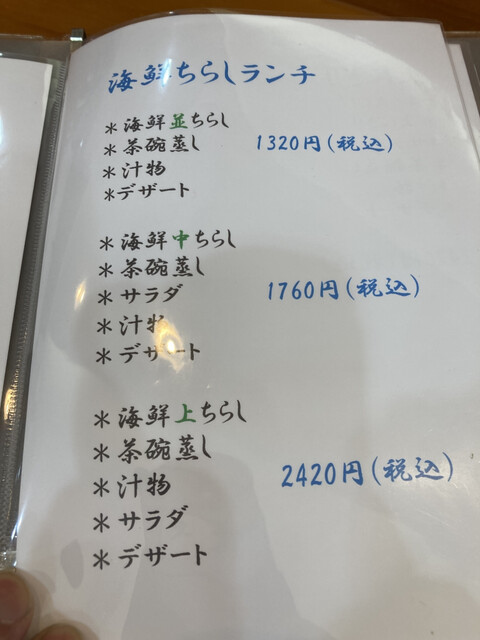 海鮮ちらしランチ
＊海鮮並ちらし
＊茶碗蒸し 1320円(税込)
＊汁物
＊デザート
＊海鮮中ちらし
＊茶碗蒸し
＊サラダ 1760円(税込)
＊汁物
＊デザート
＊海鮮上ちらし
＊茶碗蒸し
＊汁物 2420円(税込)
＊サラダ
＊デザート